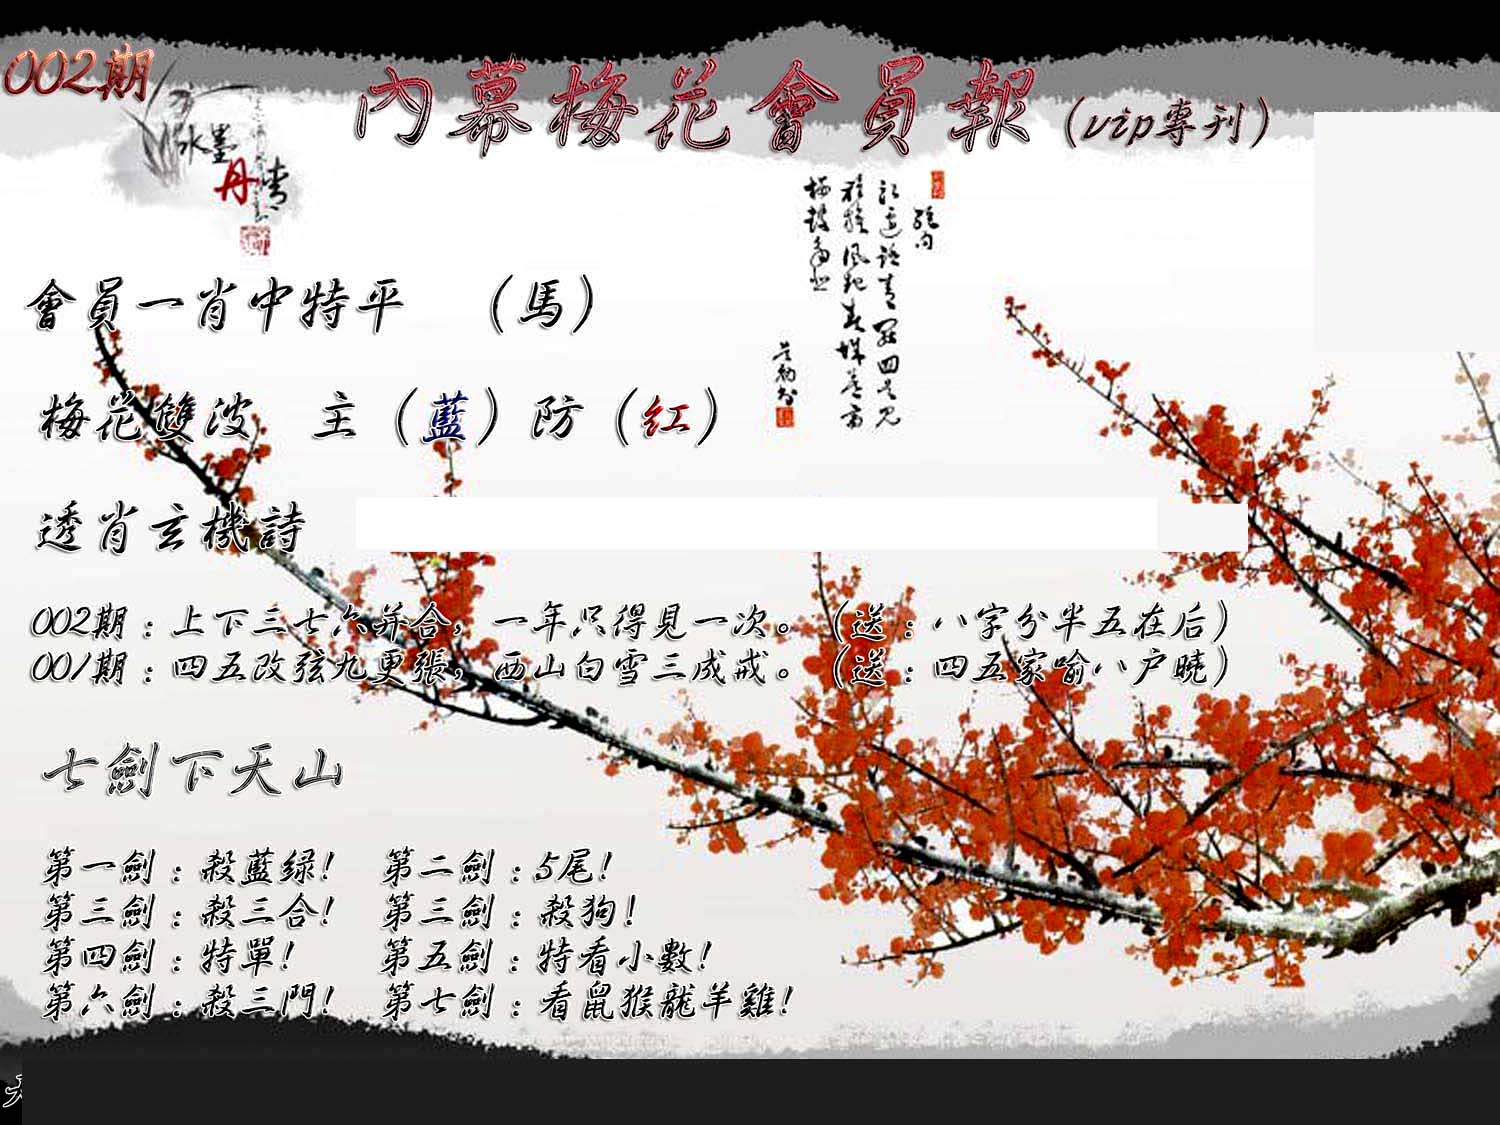 002期
內幕梅花會員報（vip專刊）
水墨
丹青
會員一肖中特平 （馬）
梅花雙波 主（藍）防（红）
透肖玄機詩
002期：上下三七六并合，一年只得見一次。（送：八字分半五在后）
001期：四五改弦九更張，西山白雪三成戒。（送：四五家喻八户曉）
七劍下天山
第一劍：殺藍绿！ 第二劍：5尾！
第三劍：殺三合！ 第三劍：殺狗！
第四劍：特單！ 第五劍：特看小數！
第六劍：殺三門！ 第七劍：看鼠猴龍羊雞！